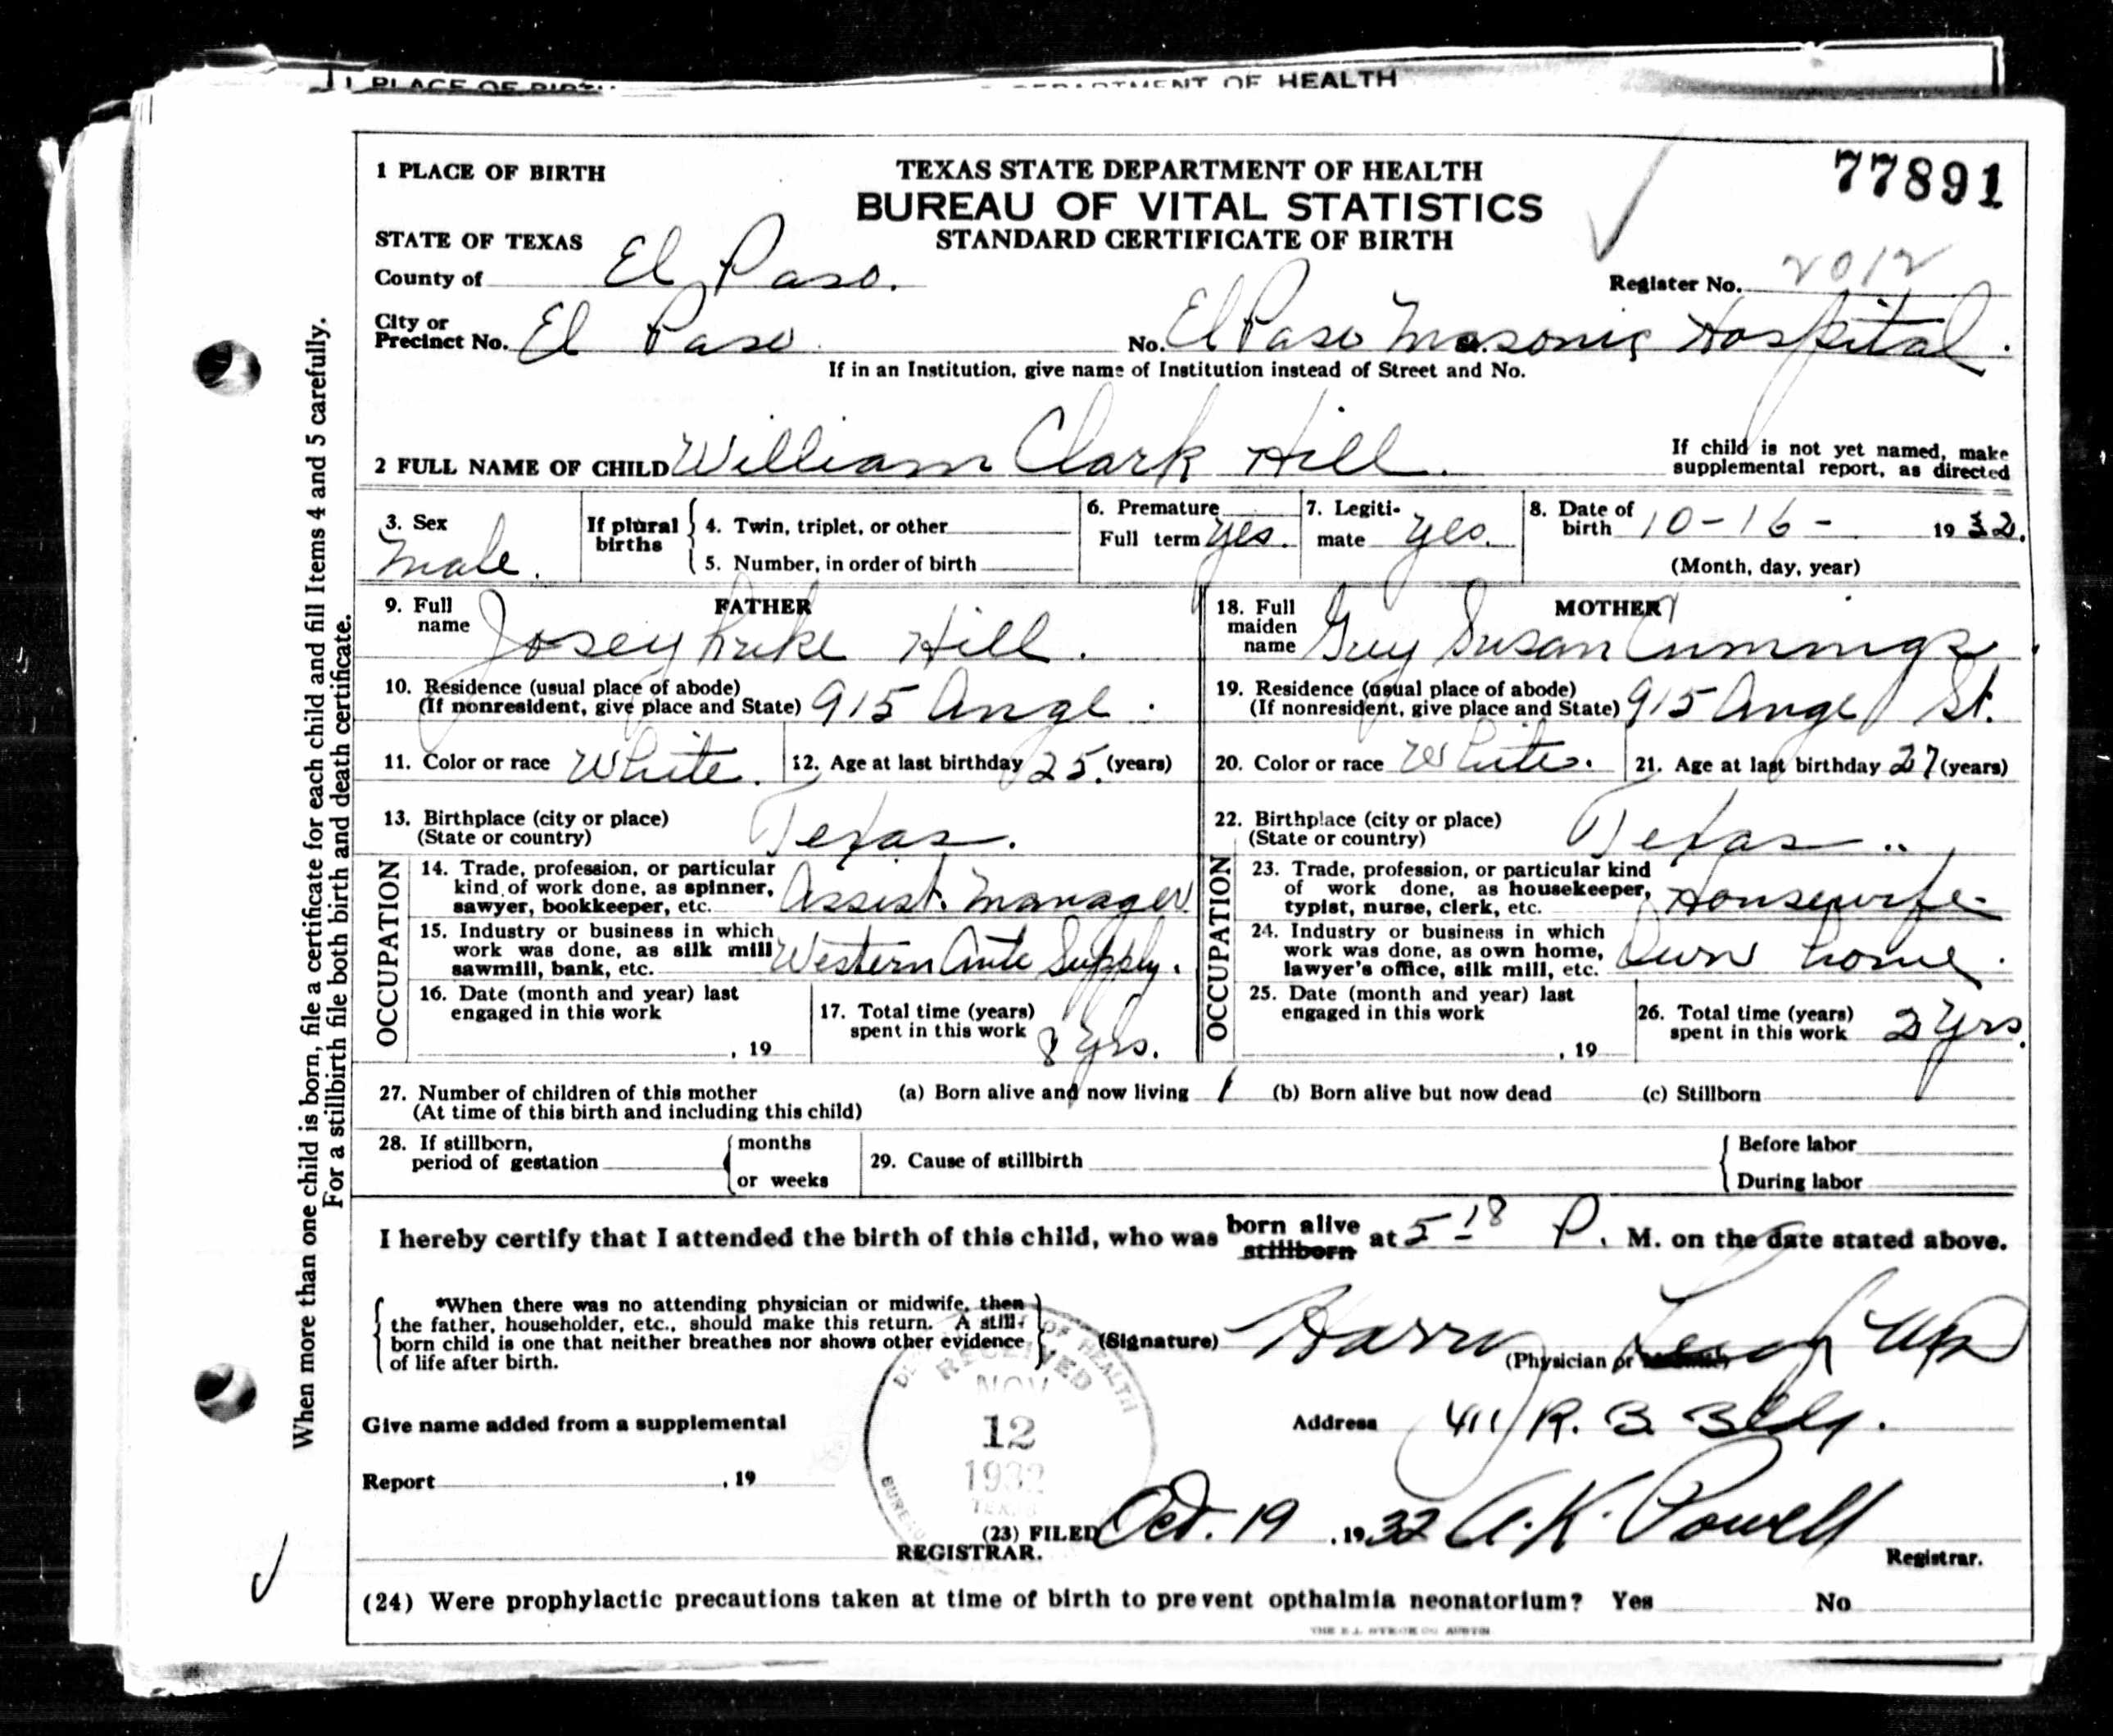 1 PLACE OF BIRTH
DEPARTMENT OF HEALTH
1 PLACE OF BIRTH
TEXAS STATE DEPARTMENT OF HEALTH
BUREAU OF VITAL STATISTICS
STANDARD CERTIFICATE OF BIRTH
77891
STATE OF TEXAS
County of El Paso.
Register No. 2012
City or Precinct No. El Paso
No. El Paso Masonic Hospital.
If in an Institution, give name of Institution instead of Street and No.
2 FULL NAME OF CHILD William Clark Hill.
If child is not yet named, make
supplemental report, as directed
3. Sex Male.
If plural births
4. Twin, triplet, or other
5. Number, in order of birth
6. Premature
Full term Yes.
7. Legitimate Yes.
8. Date of birth 10-16- 1932.
(Month, day, year)
FATHER
9. Full name Josey Hill.
10. Residence (usual place of abode)
(If nonresident, give place and State) 915 Ange.
11. Color or race White.
12. Age at last birthday 25. (years)
13. Birthplace (city or place)
(State or country) Texas.
OCCUPATION
14. Trade, profession, or particular
kind of work done, as spinner,
sawyer, bookkeeper, etc. Assist. Manager
15. Industry or business in which
work was done, as silk mill
sawmill, bank, etc. Western Auto Supply.
16. Date (month and year) last
engaged in this work
, 19
17. Total time (years)
spent in this work 8 Yrs.
MOTHER
18. Full maiden name Guy Susan Cummings.
19. Residence (usual place of abode)
(If nonresident, give place and State) 915 Ange St.
20. Color or race White.
21. Age at last birthday 27 (years)
22. Birthplace (city or place)
(State or country) Texas..
OCCUPATION
23. Trade, profession, or particular kind
of work done, as housekeeper,
typist, nurse, clerk, etc. Housewife.
24. Industry or business in which
work was done, as own home,
lawyer's office, silk mill, etc. Own home.
25. Date (month and year) last
engaged in this work
, 19
26. Total time (years)
spent in this work 2 Yrs.
27. Number of children of this mother
(At time of this birth and including this child)
(a) Born alive and now living 1 (b) Born alive but now dead (c) Stillborn
28. If stillborn,
period of gestation
months
or weeks
29. Cause of stillbirth
Before labor
During labor
I hereby certify that I attended the birth of this child, who was born alive stillborn at 5-18 P. M. on the date stated above.
*When there was no attending physician or midwife, then
the father, householder, etc., should make this return. A still-
born child is one that neither breathes nor shows other evidence
of life after birth.
(Signature) Harry Leigh MD
(Physician or
RECEIVED
OF HEALTH
NOV
12
1932
TEXAS
BUREAU
Give name added from a supplemental
Address 411 R. B. Bldg.
Report , 19
(23) FILED Oct. 19, 1932 A. K. Powell
REGISTRAR.
Registrar.
(24) Were prophylactic precautions taken at time of birth to prevent opthalmia neonatorium? Yes No
When more than one child is born, file a certificate for each child and fill Items 4 and 5 carefully.
For a stillbirth file both birth and death certificate.